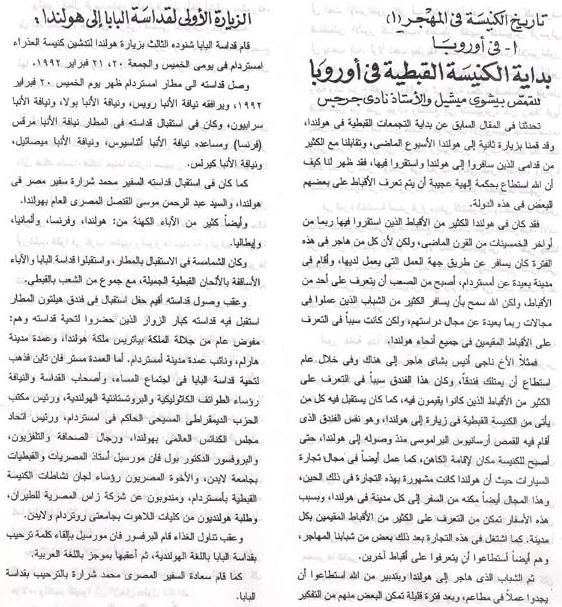 تاريخ الكنيسة فى المهجر (١)
١- فى أوروبا
بداية الكنيسة القبطية فى أوروبا
للقمص بيشوى ميشيل والأستاذ نادى جرجس
تحدثنا فى المقال السابق عن بداية التجمعات القبطية فى هولندا،
وقد قمنا بزيارة ثانية إلى هولندا الأسبوع الماضى، وتقابلنا مع الكثير
من قدامى الذين سافروا إلى هولندا واستقروا فيها، فقد ظهر لنا كيف
أن الله استطاع بحكمة إلهية عجيبة أن يتم تعرف الأقباط على بعضهم
البعض فى هذه الدولة.
فقد كان فى هولندا الكثير من الأقباط الذين استقروا فيها ربما من
أواخر الخمسينات من القرن الماضى، ولكن لأن كل من هاجر فى هذه
الفترة كان يسافر عن طريق جهة العمل التى يعمل لديها، وأقام فى
مدينة بعيدة عن أمستردام، أصبح من الصعب أن يتعرف على أحد من
الأقباط، ولكن الله سمح بأن يسافر كثير من الشباب الذين عملوا فى
مجالات ربما بعيدة عن مجال دراستهم، ولكن كانت سبباً فى التعرف
على الأقباط المقيمين فى جميع أنحاء هولندا.
فمثلاً الأخ ناجى أنيس بشاى هاجر إلى هناك وفى خلال عام
استطاع أن يمتلك فندقاً، وكان هذا الفندق سبباً فى التعرف على
الكثير من الأقباط الذين كانوا يقيمون فيه، كما كان يستقبل فيه كل من
يأتى من الكنيسة القبطية فى زيارة إلى هولندا، وهو نفس الفندق الذى
أقام فيه القمص أرسانيوس البراموسى منذ وصوله إلى هولندا، حتى
أصبح للكنيسة مكان لإقامة الكاهن، كما عمل أيضاً فى مجال تجارة
السيارات حيث أن هولندا كانت مشهورة بهذه التجارة فى ذلك الحين،
وهذا المجال أيضاً مكنه من السفر إلى كل مدينة فى هولندا، وبسبب
هذه الأسفار تمكن من التعرف على الكثير من الأقباط المقيمين بكل
مدينة. كما اشتغل فى هذه التجارة بعد ذلك بعض من شبابنا المهاجر،
وهم أيضاً أستطاعوا أن يتعرفوا على أقباط آخرين.
ثم الشباب الذى هاجر إلى هولندا وبتدبير من الله استطاعوا أن
يجدوا عملاً فى مطاعم، وبعد فترة قليلة تمكن البعض منهم من التفكير
الزيارة الأولى لقداسة البابا إلى هولندا:
قام قداسة البابا شنوده الثالث بزيارة هولندا لتدشين كنيسة العذراء
امستردام فى يومى الخميس والجمعة ٢٠، ٢١ فبراير ١٩٩٢.
وصل قداسته الى مطار امستردام ظهر يوم الخميس ٢٠ فبراير
١٩٩٢، ويرافقه نيافة الأنبا رويس، ونيافة الأنبا بولا، ونيافة الأنبا
سرابيون، وكان فى استقبال قداسته فى المطار نيافة الأنبا مرقس
(فرنسا) ومساعده نيافة الأنبا أثناسيوس، ونيافة الأنبا ميصائيل،
ونيافة الأنبا كيرلس.
كما كان فى استقبال قداسته السفير محمد شرارة سفير مصر فى
هولندا، والسيد عبد الرحمن موسى القنصل المصرى العام بهولندا.
وأيضاً كثير من الأباء الكهنة من: هولندا، وفرنسا، وألمانيا،
وإيطاليا.
وكان الشمامسة فى الاستقبال بالمطار، واستقبلوا قداسة البابا والآباء
الأساقفة بالألحان القبطية الجميلة، مع جموع من الشعب بالقبطى.
وعقب وصول قداسته أقيم حفل استقبال فى فندق هيلتون المطار
استقبل فيه قداسته كبار الزوار الذين حضروا لتحية قداسته وهم:
مفوض عام من جلالة الملكة بياتريس ملكة هولندا، وعمدة مدينة
هارلم، ونائب عمدة مدينة أمستردام. أما العمدة مستر فان تاين فذهب
لتحية قداسة البابا فى اجتماع المساء، وأصحاب القداسة والنيافة
رؤساء الطوائف الكاثوليكية والبروتستانتية الهولندية، ورئيس مكتب
الحزب الديمقراطى المسيحى الحاكم فى امستردام، ورئيس اتحاد
مجلس الكنائس العالمى بهولندا، ورجال الصحافة والتلفزيون،
والبروفسور الدكتور بول فان مورسيل أستاذ المصريات والقبطيات
بجامعة لايدن، والأخوة المصريون رؤساء لجان نشاطات الكنيسة
القبطية بأمستردام، ومندوبون عن شركة زاس المصرية للطيران،
وطلبة هولنديون من كليات اللاهوت بجامعتى روتردام ولايدن.
وعقب تناول الغذاء قام البرفسور فان مورسيل بإلقاء كلمة ترحيب
بقداسة البابا باللغة الهولندية، ثم أعقبها بموجز باللغة العربية.
كما قام سعادة السفير المصرى محمد شرارة بالترحيب بقداسة
البابا.